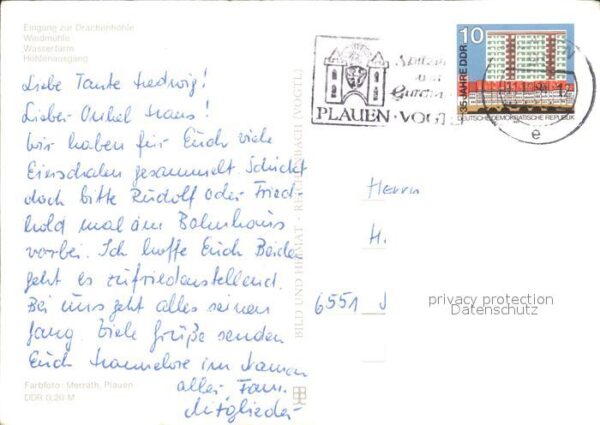 Eingang zur Drachenhöhle
Windmühle
Wasserturm
Höhlenausgang
Liebe Tante Hedwig!
Lieber Onkel Hans!
Wir haben für Euch viele
Eierschalen gesammelt Schickt
doch bitte Rudolf oder Fried-
hold mal am Bahnhaus
vorbei. Ich hoffe Euch Beiden
geht es zufriedenstellend.
Bei uns geht alles seinen
Gang. Viele Grüße senden
Euch Hannelore im Namen
aller Fam.
Mitglieder
Farbfoto: Merrath, Plauen
DDR 0,20 M
BILD UND HEIMAT · REICHENBACH (VOGTL)
Spitzen
und
PLAUEN · VOGTL
10
35 JAHRE DDR
DEUTSCHE DEMOKRATISCHE REPUBLIK
e
Herrn
H.
6551 J
privacy protection
Datenschutz